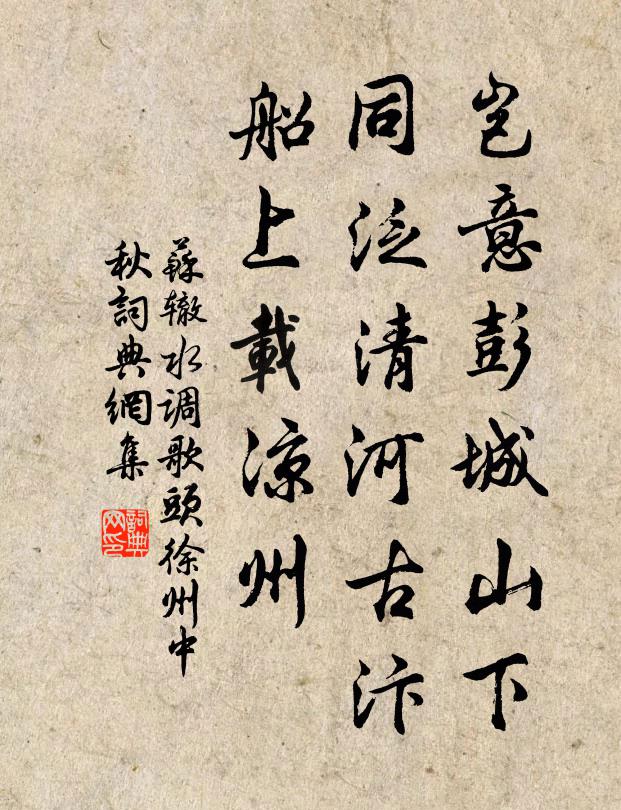 岂意彭城山下
同泛清河古汴
船上載凉州
蘇辙水调歌頭徐州中
秋詞典網集
詞典网印